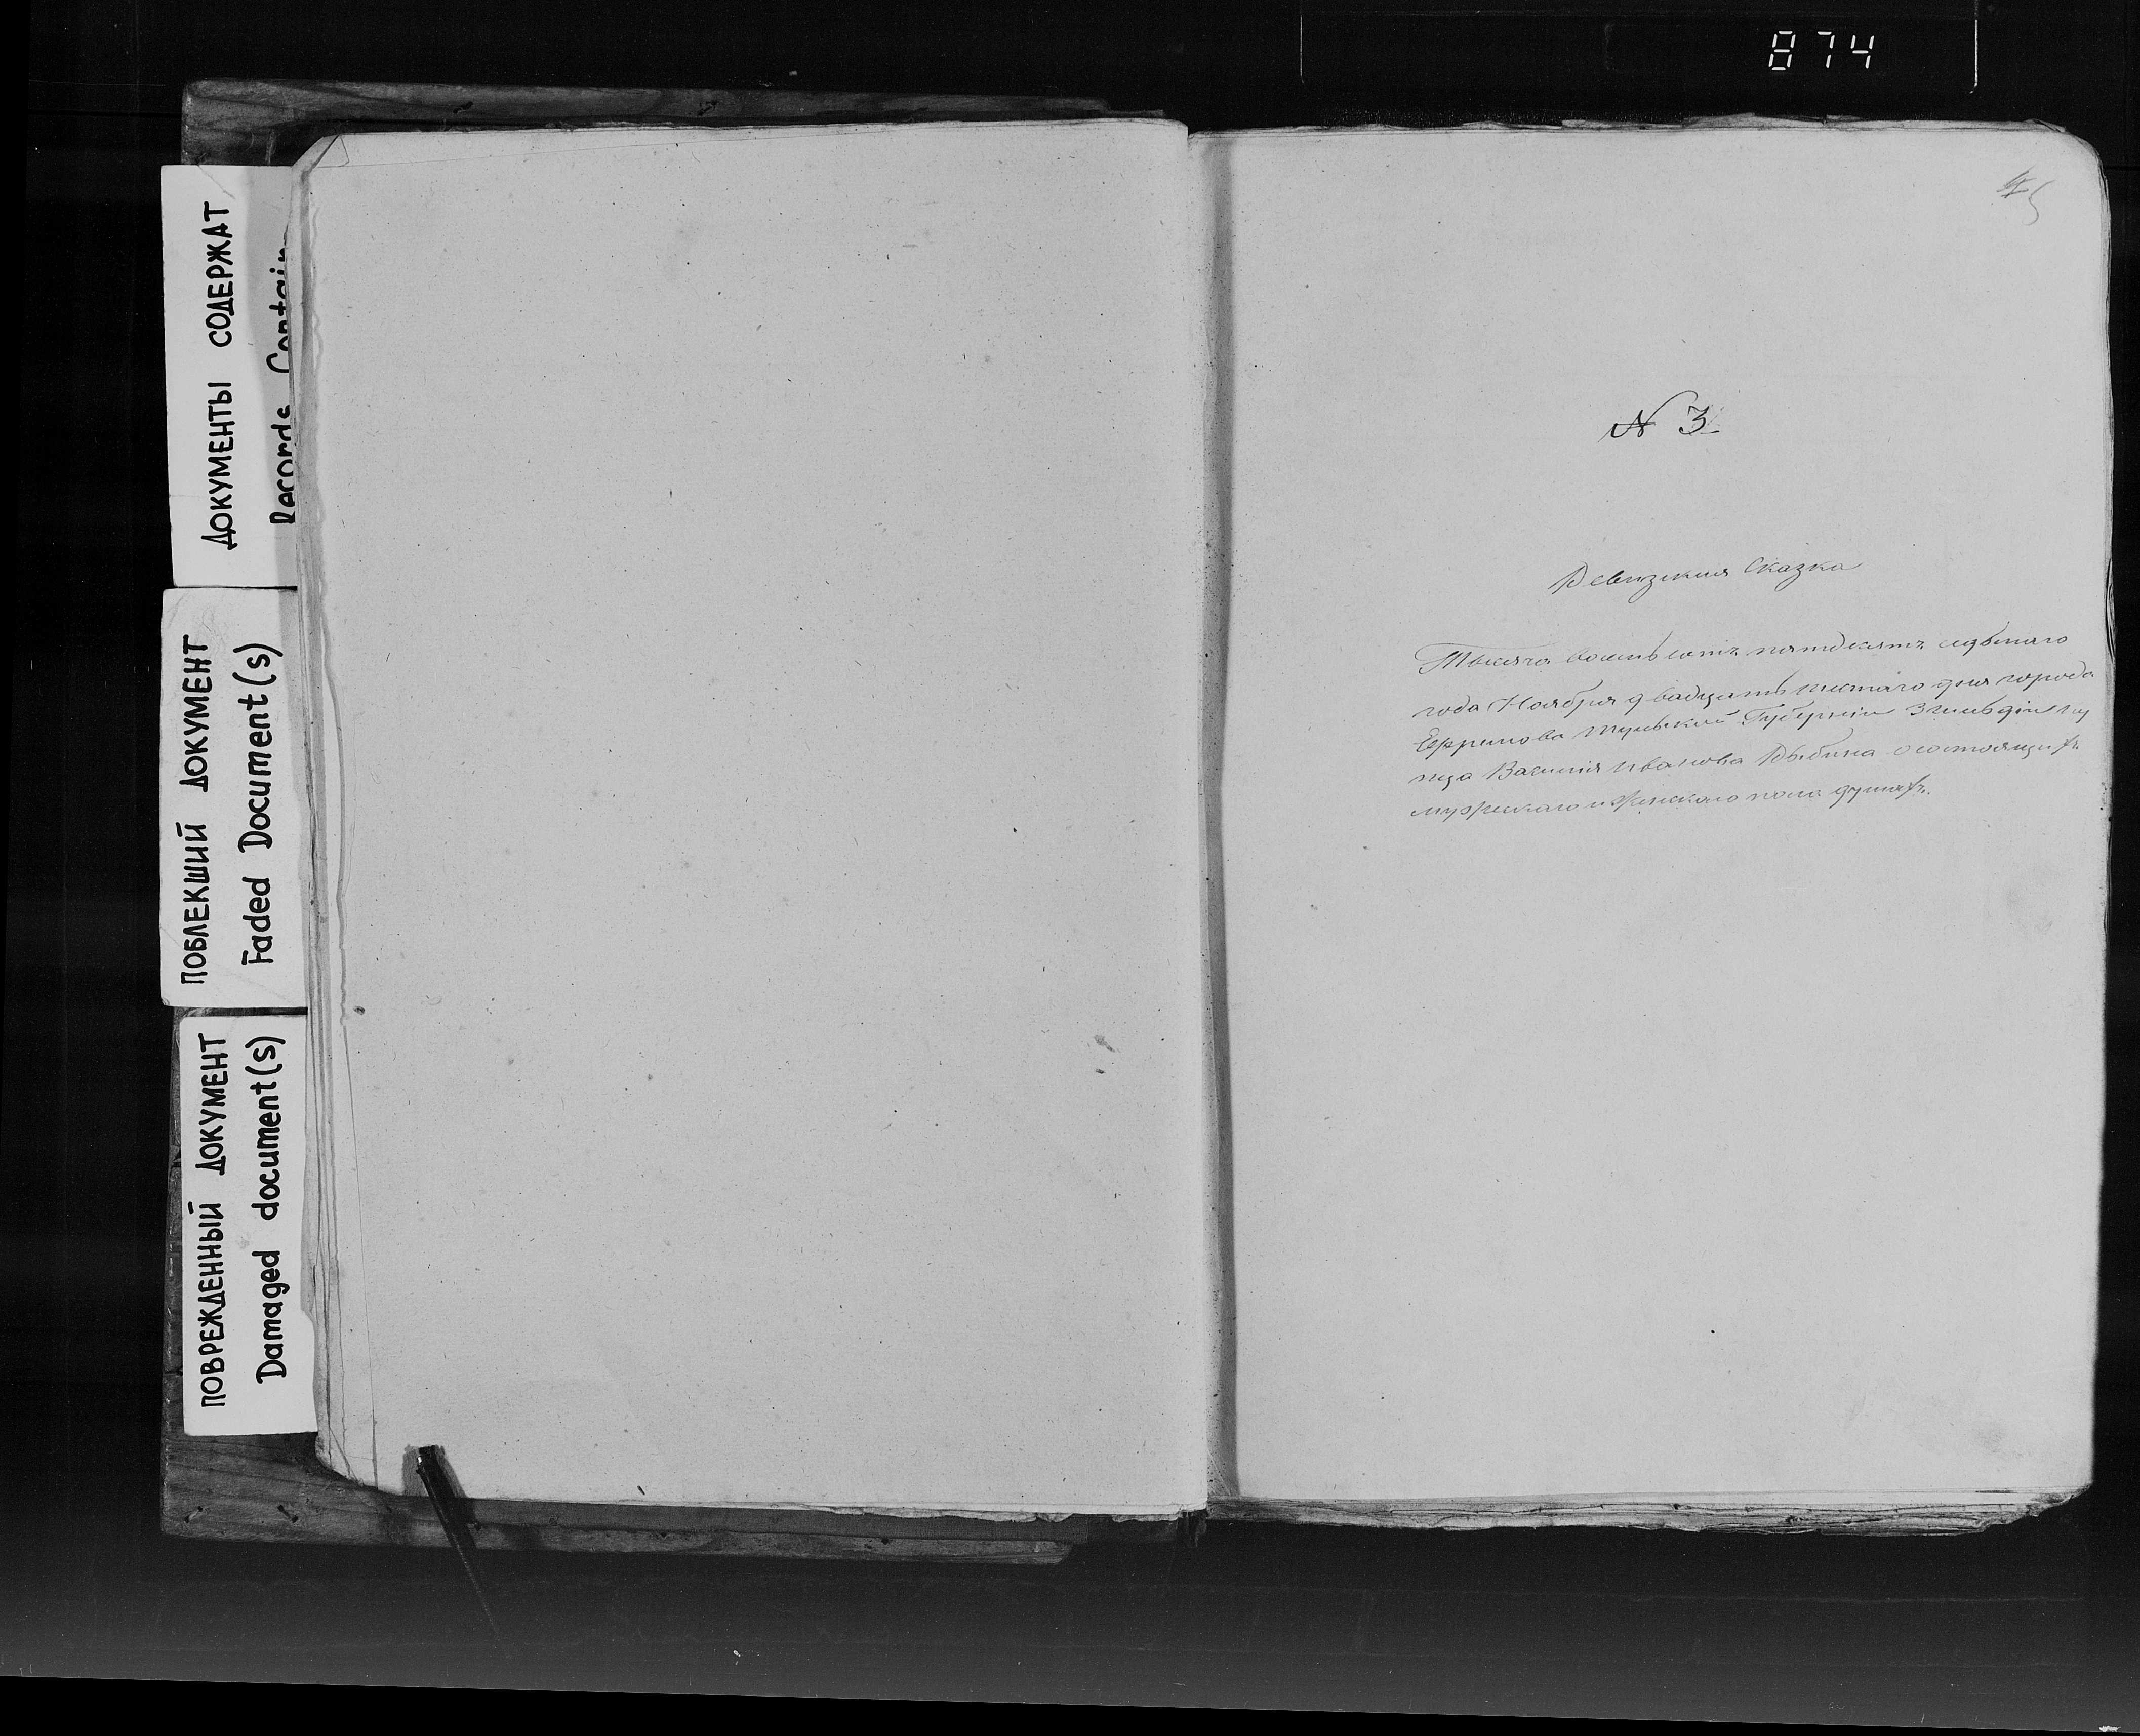 874
ДОКУМЕНТЫ СОДЕРЖАТ
Records Contain
ПОБЛЕКШИЙ ДОКУМЕНТ
Faded Document(s)
ПОВРЕЖДЕННЫЙ ДОКУМЕНТ
Damaged document(s)
№ 3
Ревизская Сказка
Тысяча восемьсотъ пятдесятъ седьмаго
года Ноября двадцать шестаго дня города
Ефремова Тульской Губерніи 3 гильдіи ку
пца Василія Иванова Рыбина о состоящихъ
мужескаго и женскаго пола душахъ.